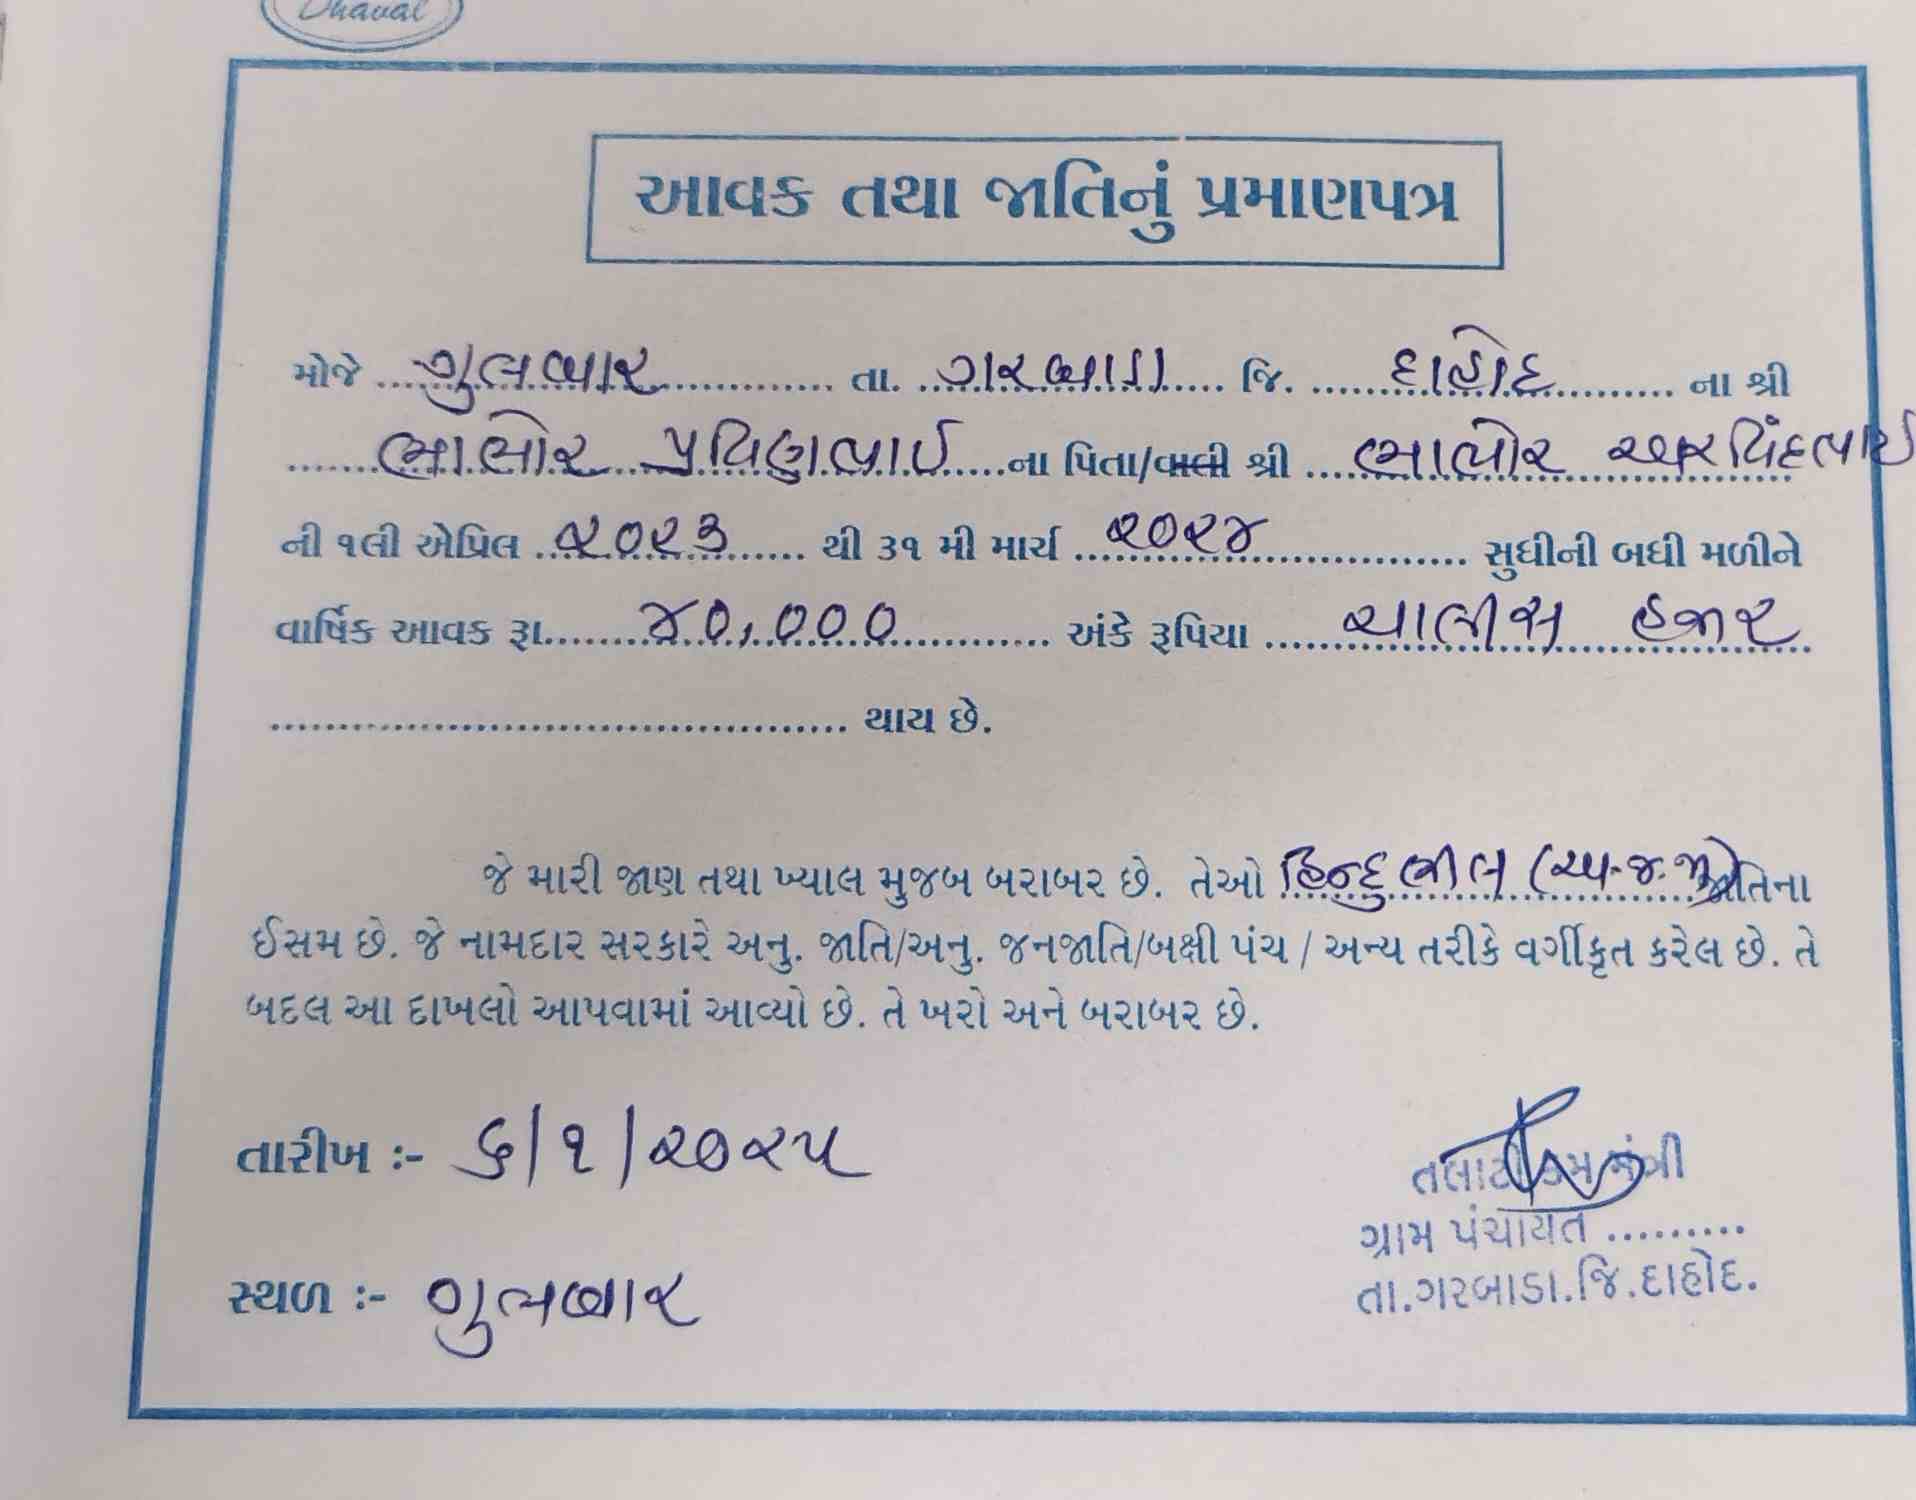 Dhaval
આવક તથા જાતિનું પ્રમાણપત્ર
મોજે ....ગુલબાર............. તા. ..ગરબાડા..... જિ. ......દાહોદ......... ના શ્રી
.......ભાભોર પ્રવિણભાઈ.....ના પિતા/વાલી શ્રી ....ભાભોર અરવિંદભાઈ
ની ૧લી એપ્રિલ ..૨૦૨૩....... થી ૩૧ મી માર્ચ ...૨૦૨૪................ સુધીની બધી મળીને
વાર્ષિક આવક રૂા.......૪૦,૦૦૦............ અંકે રૂપિયા ......ચાલીસ હજાર
........................................... થાય છે.
જે મારી જાણ તથા ખ્યાલ મુજબ બરાબર છે. તેઓ હિન્દુ ભીલ (અ.જ.જા)તિના
ઈસમ છે. જે નામદાર સરકારે અનુ. જાતિ/અનુ. જનજાતિ/બક્ષી પંચ / અન્ય તરીકે વર્ગીકૃત કરેલ છે. તે
બદલ આ દાખલો આપવામાં આવ્યો છે. તે ખરો અને બરાબર છે.
તારીખ :- ૬/૧/૨૦૨૫
તલાટી કમ મંત્રી
ગ્રામ પંચાયત .........
તા.ગરબાડા.જિ.દાહોદ.
સ્થળ :- ગુલબાર